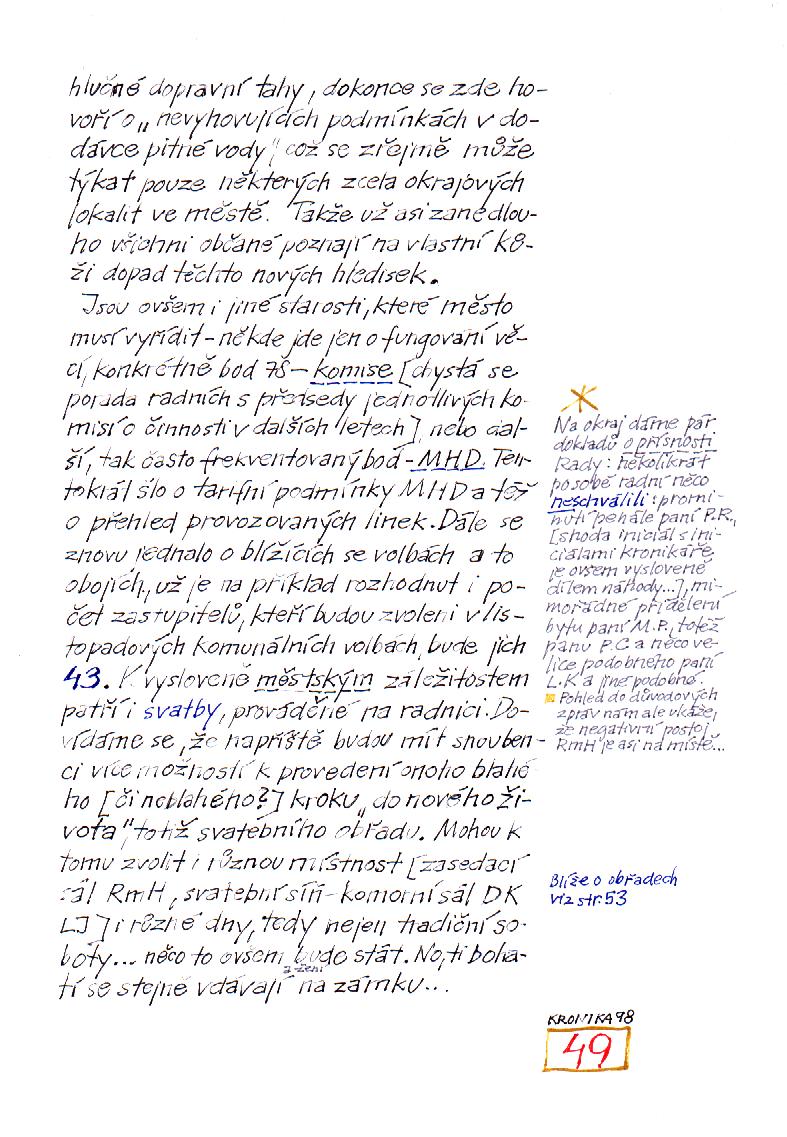 hlučné dopravní tahy, dokonce se zde ho-
voří o „nevyhovujících podmínkách v do-
dávce pitné vody" což se zřejmě může
týkat pouze některých zcela okrajových
lokalit ve městě. Takže už asi zanedlou-
ho všichni občané poznají na vlastní ků-
ži dopad těchto nových hledisek.
Jsou ovšem i jiné starosti, které město
musí vyřídit - někde jde jen o fungování vě-
cí, konkrétně bod 78 - komise [chystá se
porada radních s předsedy jednotlivých ko-
misí o činnosti v dalších letech], nebo dal-
ší, tak často frekventovaný bod - MHD. Ten-
tokrát šlo o tarifní podmínky MHD a též
o přehled provozovaných linek. Dále se
znovu jednalo o blížících se volbách a to
obojích, už je na příklad rozhodnut i po-
čet zastupitelů, kteří budou zvoleni v lis-
topadových komunálních volbách, bude jich
43. K vysloveně městským záležitostem
patří i svatby, prováděné na radnici. Do-
vídáme se, že napříště budou mít snouben-
ci více možností k provedení onoho blahé-
ho [či neblahého?] kroku „do nového ži-
vota", totiž svatebního obřadu. Mohou k
tomu zvolit i různou místnost [zasedací
sál RmH, svatební síň - komorní sál DK
LJ] i různé dny, tedy nejen tradiční so-
boty... něco to ovšem bude stát. No, ti boha-
tí se stejně vdávají a žení na zámku...
Na okraj dáme pár
dokladů o přísnosti
Rady: několikrát
po sobě radní něco
neschválili: promi-
nutí penále paní P.R.,
[shoda iniciál s ini-
ciálami kronikáře
je ovšem vysloveně
dílem náhody...], mi-
mořádné přidělení
bytu paní M.P., totéž
panu P.C a něco ve-
lice podobného paní
L.K a jiné podobné.
Pohled do důvodových
zpráv nám ale ukáže,
že negativní postoj
RmH je asi na místě...
Blíže o obřadech
viz str. 53
KRONIKA 98
49